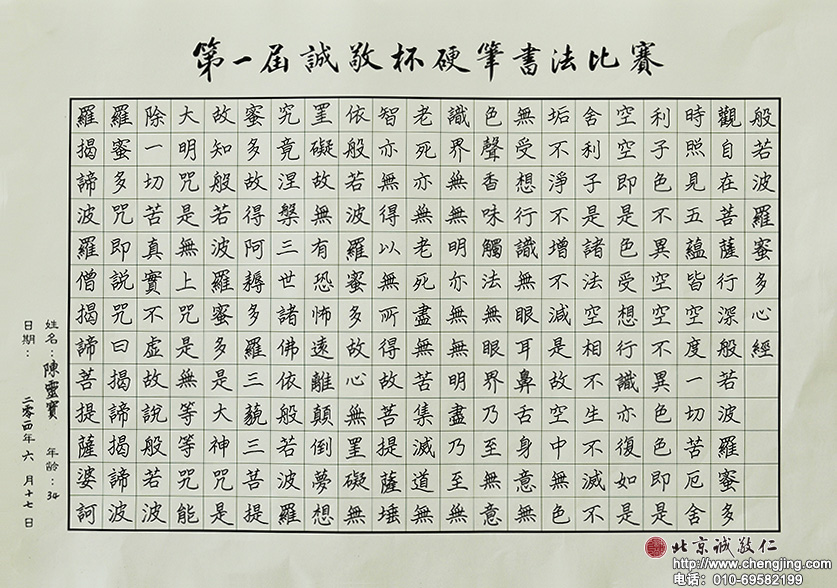 第一屆誠敬杯硬筆書法比賽
般若波羅蜜多心經
觀自在菩薩行深般若波羅蜜多
時照見五蘊皆空度一切苦厄舍
利子色不異空空不異色色即是
空空即是色受想行識亦復如是
舍利子是諸法空相不生不滅不
垢不淨不增不減是故空中無色
無受想行識無眼耳鼻舌身意無
色聲香味觸法無眼界乃至無意
識界無無明亦無無明盡乃至無
老死亦無老死盡無苦集滅道無
智亦無得以無所得故菩提薩埵
依般若波羅蜜多故心無罣礙無
罣礙故無有恐怖遠離顛倒夢想
究竟涅槃三世諸佛依般若波羅
蜜多故得阿耨多羅三藐三菩提
故知般若波羅蜜多是大神咒是
大明咒是無上咒是無等等咒能
除一切苦真實不虛故說般若波
羅蜜多咒即說咒曰揭諦揭諦波
羅揭諦波羅僧揭諦菩提薩婆訶
姓名：陳靈寶 年齡：34
日期：二零一四年六月十七日
北京誠敬仁
http://www.chengjing.com
电话：010-69582199